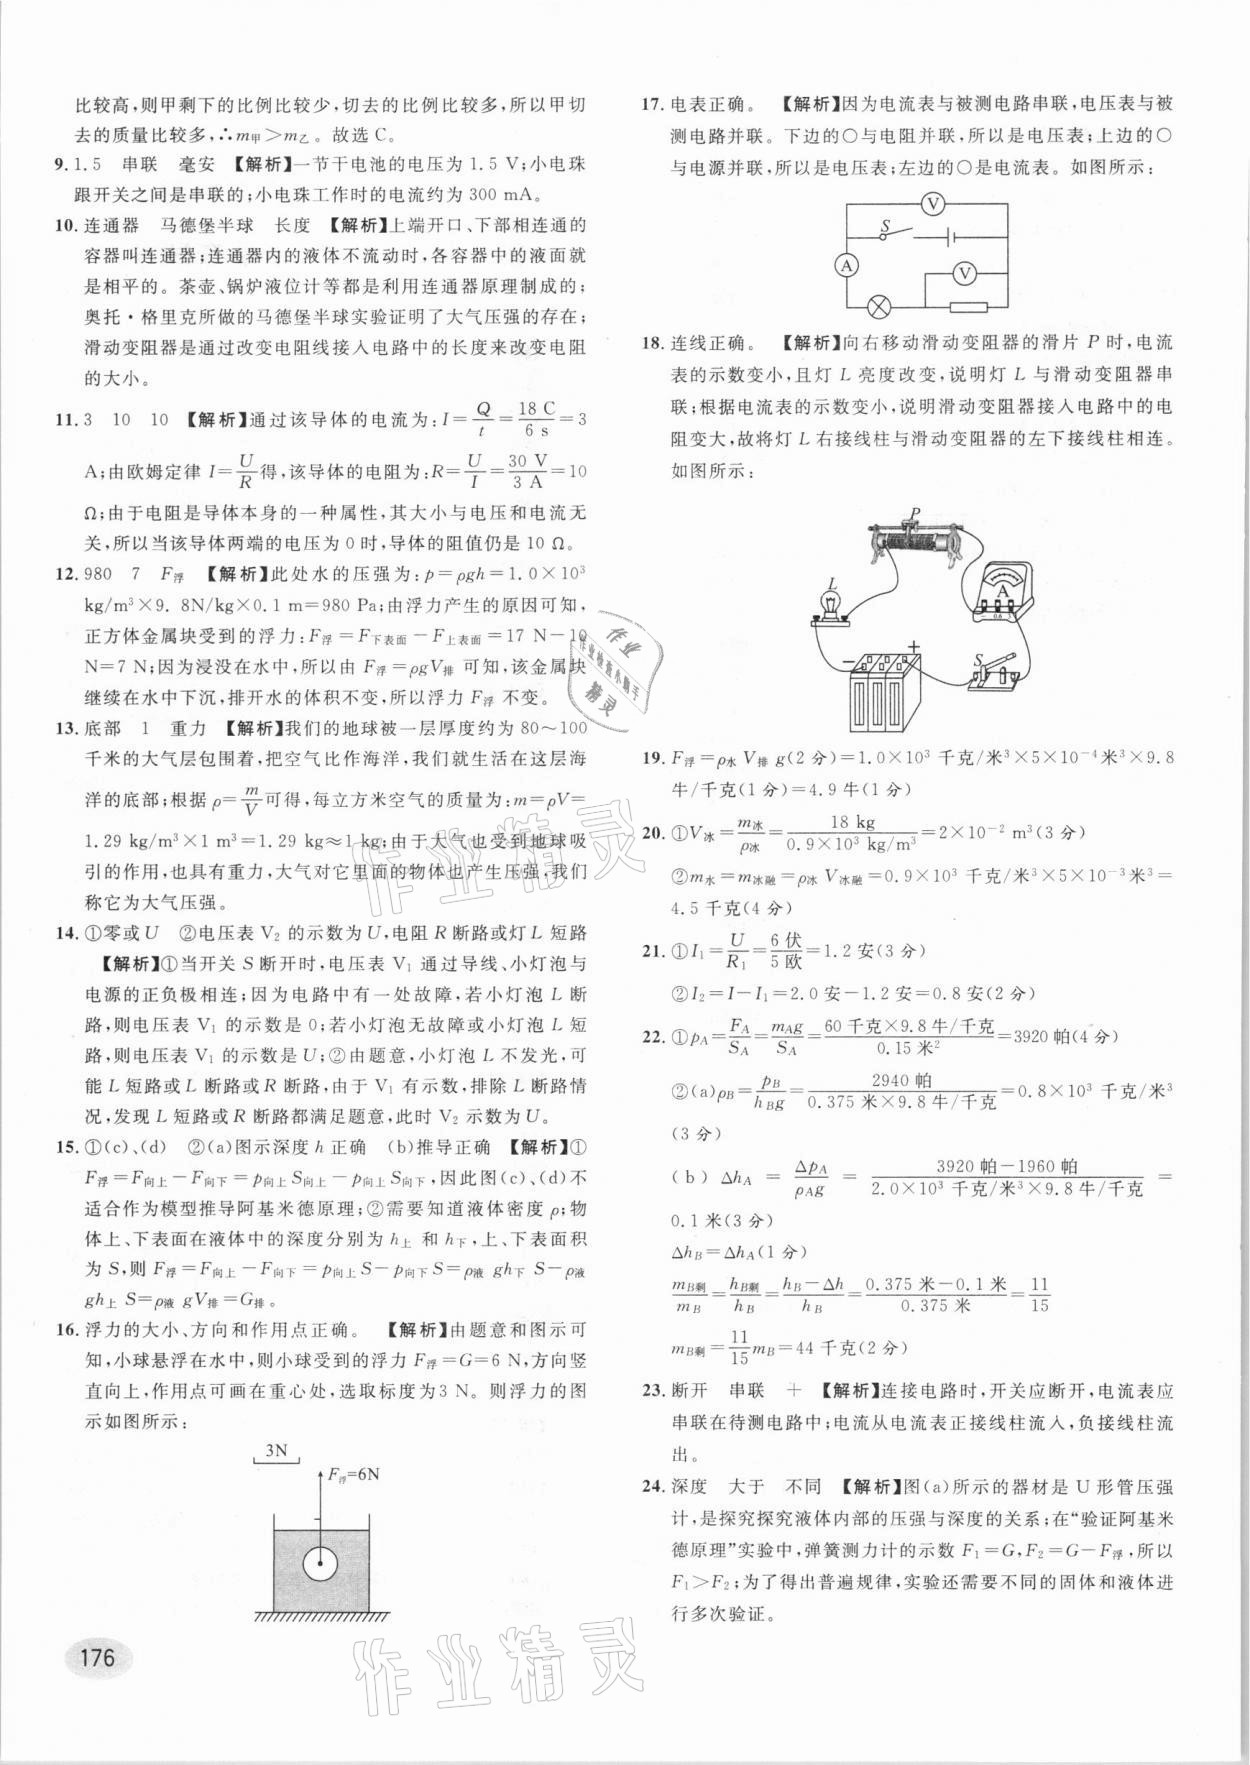 比较高,则甲剩下的比例比较少,切去的比例比较多,所以甲切
去的质量比较多,∴m甲>m乙。故选C。
9. 1.5 串联 毫安 【解析】一节干电池的电压为1.5 V;小电珠
跟开关之间是串联的;小电珠工作时的电流约为300 mA。
10. 连通器 马德堡半球 长度 【解析】上端开口、下部相连通的
容器叫连通器;连通器内的液体不流动时,各容器中的液面就
是相平的。茶壶、锅炉液位计等都是利用连通器原理制成的;
奥托·格里克所做的马德堡半球实验证明了大气压强的存在;
滑动变阻器是通过改变电阻线接入电路中的长度来改变电阻
的大小。
11. 3 10 10 【解析】通过该导体的电流为:I=Q/t=18 C/6 s=3
A;由欧姆定律 I=U/R得,该导体的电阻为:R=U/I=30 V/3 A=10
Ω;由于电阻是导体本身的一种属性,其大小与电压和电流无
关,所以当该导体两端的电压为0时,导体的阻值仍是10 Ω。
12. 980 7 F浮 【解析】此处水的压强为:p=ρgh=1.0×10³
kg/m³×9.8N/kg×0.1 m=980 Pa;由浮力产生的原因可知,
正方体金属块受到的浮力:F浮=F下表面-F上表面=17 N-10
N=7 N;因为浸没在水中,所以由 F浮=ρgV排 可知,该金属块
继续在水中下沉,排开水的体积不变,所以浮力 F浮 不变。
13. 底部 1 重力 【解析】我们的地球被一层厚度约为80~100
千米的大气层包围着,把空气比作海洋,我们就生活在这层海
洋的底部;根据 ρ=m/V可得,每立方米空气的质量为:m=ρV=
1.29 kg/m³×1 m³=1.29 kg≈1 kg;由于大气也受到地球吸
引的作用,也具有重力,大气对它里面的物体也产生压强,我们
称它为大气压强。
14. ①零或U ②电压表 V₂ 的示数为U,电阻 R 断路或灯 L 短路
【解析】①当开关 S 断开时,电压表 V₁ 通过导线、小灯泡与
电源的正负极相连;因为电路中有一处故障,若小灯泡 L 断
路,则电压表 V₁ 的示数是0;若小灯泡无故障或小灯泡 L 短
路,则电压表 V₁ 的示数是 U;②由题意,小灯泡 L 不发光,可
能 L 短路或 L 断路或 R 断路,由于 V₁ 有示数,排除 L 断路情
况,发现 L 短路或 R 断路都满足题意,此时 V₂ 示数为 U。
15. ①(c)、(d) ②(a)图示深度 h 正确 (b)推导正确 【解析】①
F浮=F向上-F向下=p向上S向上-p向上S向下,因此图(c)、(d)不
适合作为模型推导阿基米德原理;②需要知道液体密度 ρ;物
体上、下表面在液体中的深度分别为 h上 和 h下,上、下表面积
为 S,则 F浮=F向上-F向下=p向上S-p向下S=ρ液 gh下 S-ρ液
gh上 S=ρ液 gV排=G排。
16. 浮力的大小、方向和作用点正确。 【解析】由题意和图示可
知,小球悬浮在水中,则小球受到的浮力 F浮=G=6 N,方向竖
直向上,作用点可画在重心处,选取标度为3 N。则浮力的图
示如图所示:
3N
F浮=6N
176
17. 电表正确。 【解析】因为电流表与被测电路串联,电压表与被
测电路并联。下边的○与电阻并联,所以是电压表;上边的○
与电源并联,所以是电压表;左边的○是电流表。如图所示:
V
S
A
V
18. 连线正确。 【解析】向右移动滑动变阻器的滑片 P 时,电流
表的示数变小,且灯 L 亮度改变,说明灯 L 与滑动变阻器串
联;根据电流表的示数变小,说明滑动变阻器接入电路中的电
阻变大,故将灯 L 右接线柱与滑动变阻器的左下接线柱相连。
如图所示:
P
L
A
- 0.6 3
S
- +
19. F浮=ρ水 V排 g(2分)=1.0×10³ 千克/米³×5×10⁻⁴米³×9.8
牛/千克(1分)=4.9牛(1分)
20. ①V冰=m冰/ρ冰=18 kg/0.9×10³ kg/m³=2×10⁻² m³(3分)
②m水=m冰融=ρ冰 V冰融=0.9×10³ 千克/米³×5×10⁻³米³=
4.5千克(4分)
21. ①I₁=U/R₁=6伏/5欧=1.2安(3分)
②I₂=I-I₁=2.0安-1.2安=0.8安(2分)
22. ①pA=FA/SA=mAg/SA=60千克×9.8牛/千克/0.15米²=3920帕(4分)
②(a)ρB=pB/hBg=2940帕/0.375米×9.8牛/千克=0.8×10³ 千克/米³
(3分)
(b) ΔhA=ΔpA/ρAg=3920帕-1960帕/2.0×10³ 千克/米³×9.8牛/千克=
0.1米(3分)
ΔhB=ΔhA(1分)
mB剩/mB=hB剩/hB=hB-Δh/hB=0.375米-0.1米/0.375米=11/15
mB剩=11/15mB=44千克(2分)
23. 断开 串联 + 【解析】连接电路时,开关应断开,电流表应
串联在待测电路中;电流从电流表正接线柱流入,负接线柱流
出。
24. 深度 大于 不同 【解析】图(a)所示的器材是 U 形管压强
计,是探究探究液体内部的压强与深度的关系;在“验证阿基米
德原理”实验中,弹簧测力计的示数 F₁=G,F₂=G-F浮,所以
F₁>F₂;为了得出普遍规律,实验还需要不同的固体和液体进
行多次验证。
作业
作业检查小助手
精灵
作业精灵
作业精灵